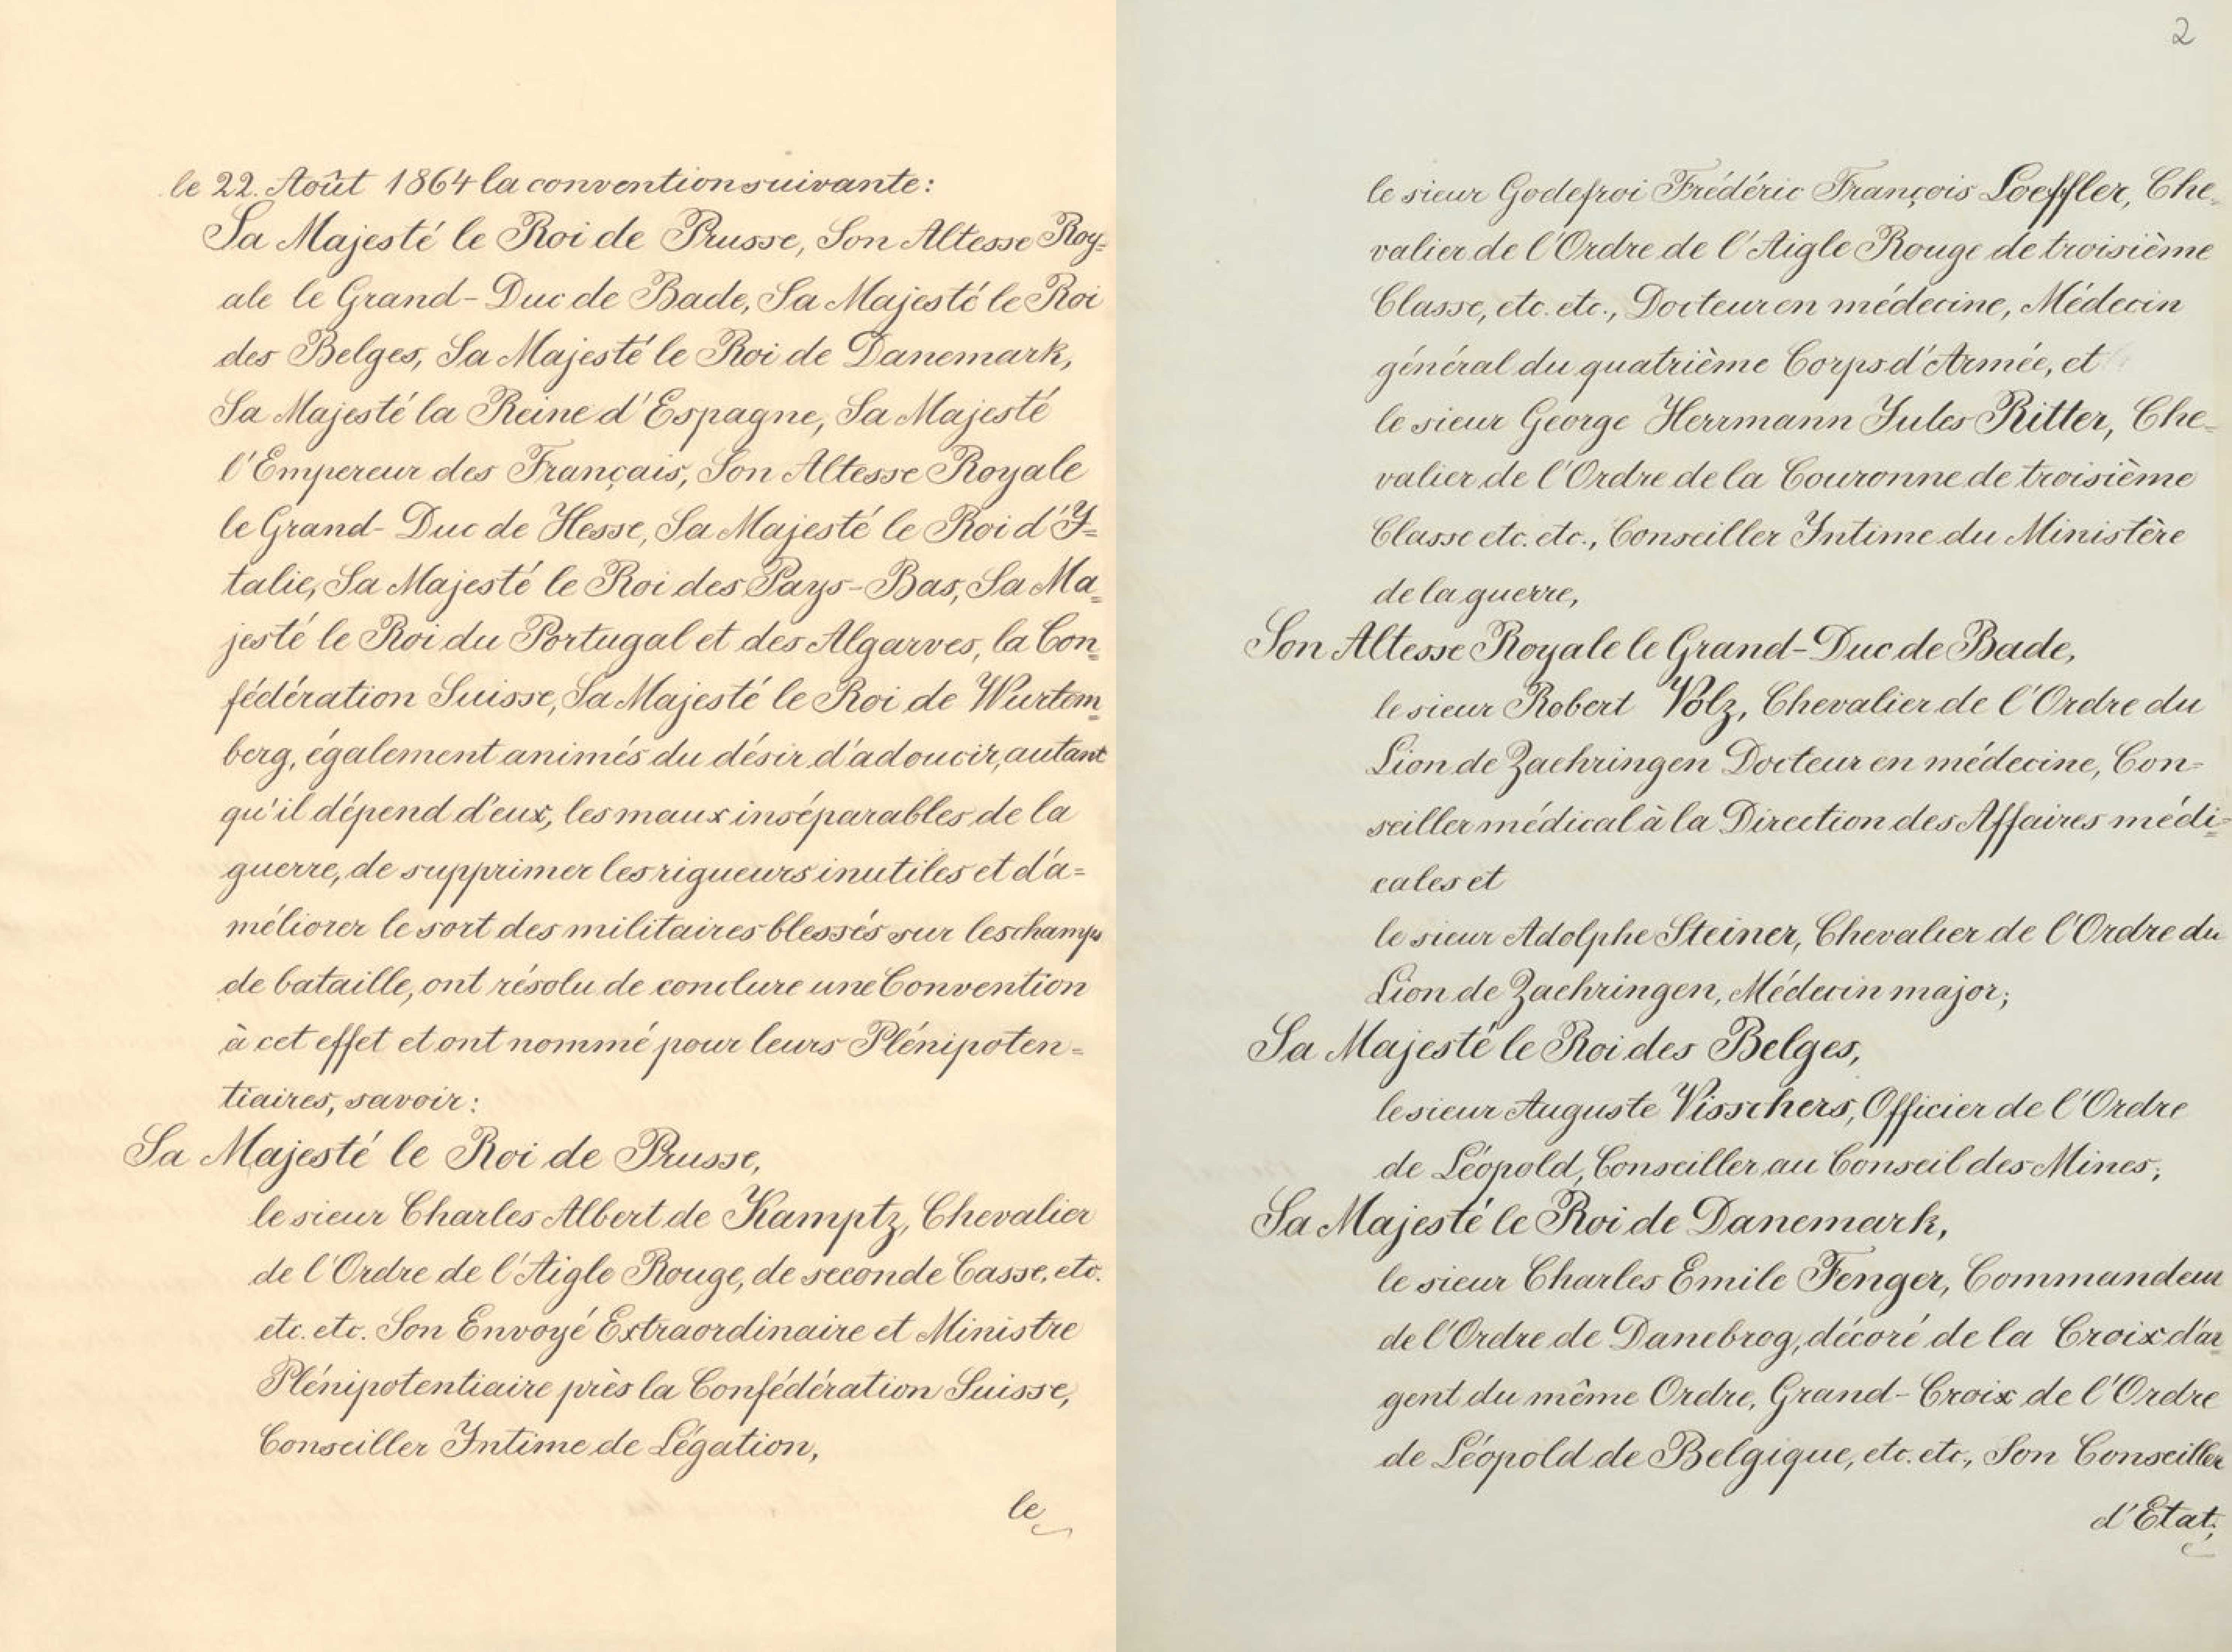 le 22. Août 1864 la convention suivante:
Sa Majesté le Roi de Prusse, Son Altesse Roy=
ale le Grand-Duc de Bade, Sa Majesté le Roi
des Belges, Sa Majesté le Roi de Danemark,
Sa Majesté la Reine d'Espagne, Sa Majesté
l'Empereur des Français, Son Altesse Royale
le Grand-Duc de Hesse, Sa Majesté le Roi d'I=
talie, Sa Majesté le Roi des Pays-Bas, Sa Ma=
jesté le Roi du Portugal et des Algarves, la Con=
fédération Suisse, Sa Majesté le Roi de Wurtem=
berg, également animés du désir d'adoucir, autant
qu'il dépend d'eux, les maux inséparables de la
guerre, de supprimer les rigueurs inutiles et d'a=
méliorer le sort des militaires blessés sur les champs
de bataille, ont résolu de conclure une Convention
à cet effet et ont nommé pour leurs Plénipoten=
tiaires, savoir:
Sa Majesté le Roi de Prusse,
le sieur Charles Albert de Kamptz, Chevalier
de l'Ordre de l'Aigle Rouge, de seconde Casse, etc.
etc. etc. Son Envoyé Extraordinaire et Ministre
Plénipotentiaire près la Confédération Suisse,
Conseiller Intime de Légation,
le
2
le sieur Godefroi Frédéric François Loeffler, Che=
valier de l'Ordre de l'Aigle Rouge de troisième
Classe, etc. etc., Docteur en médecine, Médecin
général du quatrième Corps d'Armée, et
le sieur George Herrmann Jules Ritter, Che=
valier de l'Ordre de la Couronne de troisième
Classe etc. etc., Conseiller Intime du Ministère
de la guerre,
Son Altesse Royale le Grand-Duc de Bade,
le sieur Robert Volz, Chevalier de l'Ordre du
Lion de Zaehringen Docteur en médecine, Con=
seiller médical à la Direction des Affaires médi=
cales et
le sieur Adolphe Steiner, Chevalier de l'Ordre du
Lion de Zaehringen, Médecin major;
Sa Majesté le Roi des Belges,
le sieur Auguste Visschers, Officier de l'Ordre
de Léopold, Conseiller au Conseil des Mines;
Sa Majesté le Roi de Danemark,
le sieur Charles Emile Fenger, Commandeur
de l'Ordre de Danebrog, décoré de la Croix d'ar=
gent du même Ordre, Grand-Croix de l'Ordre
de Léopold de Belgique, etc. etc., Son Conseiller
d'Etat;